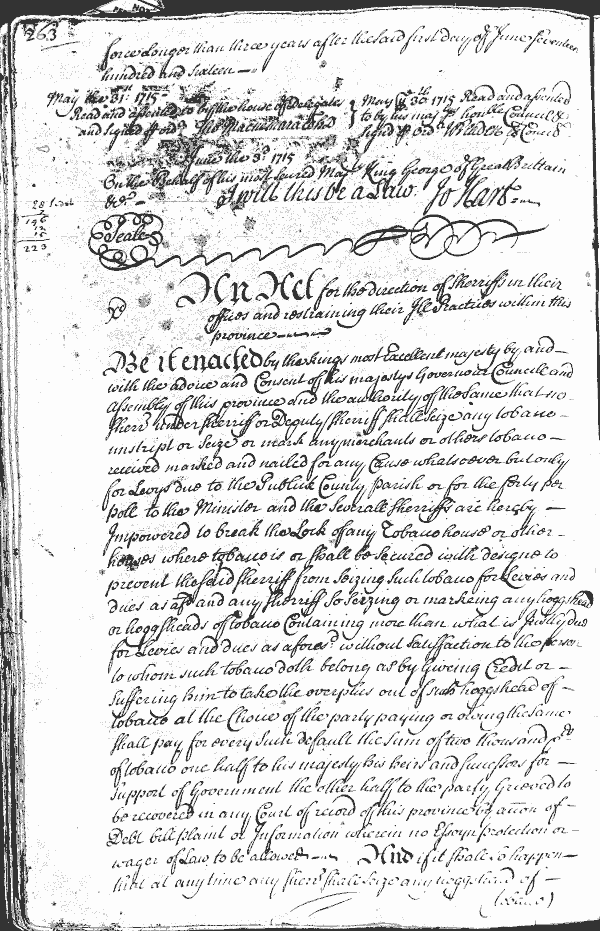 263
force Longer than three years after the said first day of June seventeen
hundred and sixteen
May the 31st 1715
Read and assented to by the house of Delegates
and signed p ord.r Tho Macnemara Clk
May 30th 1715 Read and assented
to by his maj.tys honble Councill &
Signd p ord.r
June the 3d 1715
On the Behalf of his most Sacred Maj.ty King George of Great Brittain
&c. I will this be a Law. Jo Hart
223
Seale
An Act for the direction of Sherriffs in their
offices and restraining their Ill Practices within this
province
Be it enacted by the kings most Excellent majesty by and
with the advice and Consent of his majestys Governour Councile and
Assembly of this province and the authority of the same that no
Sherr. undersherriff or Deputy Sherriff shall seize any tobacco
unstript or Seize or mark any merchants or others tobacco
received marked and nailed for any Cause whatsoever but only
for Levys due to the Publick County parish or for the forty per
poll to the Minister and the severall Sherriffs are hereby
Impowered to break the Lock of any Tobacco house or other
houses where tobacco is or shall be Secured with designe to
prevent the said Sherriff from Seizing such tobacco for Levies and
dues as afd and any Sherriff so Seizing or markeing any hoggshead
or hoggsheads of tobacco Containing more than what is Justly due
for Levies and dues as afores.d without Satisfaction to the person
to whom such tobacco doth belong as by Giveing Credit or
Suffering him to take the overplus out of such hoggshead of
tobacco at the Choice of the party paying or owing the same
shall pay for every such default the sum of two thousand pds
of tobacco one half to his majesty his heirs and successors for
support of Government the other half to the party Grieved to
be recovered in any Court of record of this province by action of
Debt bill plaint or Information wherein no Essoyn protection or
wager of Law to be allowed And if it shall so happen
that at any time any Sherr. shall seize any hoggshead of
(tobacco)